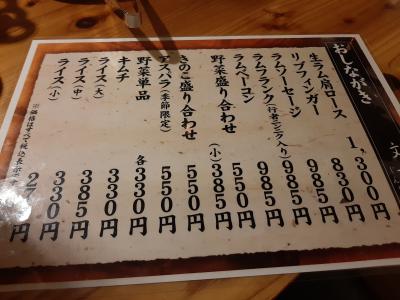 おしながき
生ラム肩ロース 1,300円
リブフィンガー 830円
ラムソーセージ 985円
ラムフランク(行者ニンニク入り) 985円
ラムベーコン 985円
野菜盛り合わせ 550円
(小)385円
きのこ盛り合わせ 550円
アスパラ(季節限定) 550円
野菜単品 各330円
キムチ 330円
ライス(大) 385円
ライス(中) 330円
ライス(小) 220円
※価格はすべて税込表示